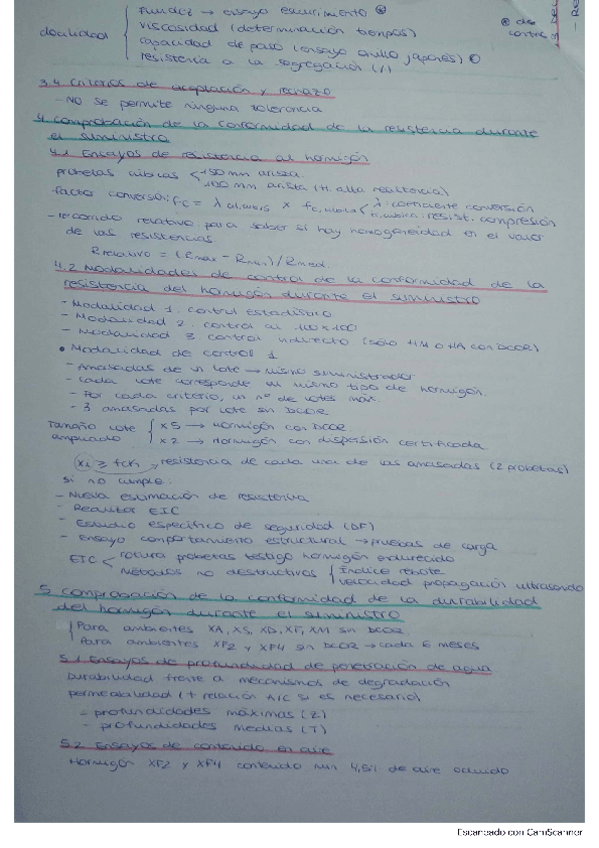 Fluidez → ensayo escurrimiento
viscosidad (determinación tiempos)
docilidad
capacidad de paso (ensayo anillo japonés)
resistencia a la segregación (1)
3.4 Criterios de aceptación y rechazo
- NO se permite ninguna tolerancia
4 Comprobación de la conformidad de la resistencia durante
el suministro
4.1 Ensayos de resistencia al hormigón
probetas cúbicas 150 mm arista
100 mm arista (H. alta resistencia)
factor conversión: fc = λ x fc, λ: coeficiente conversión
resist. compresión
- recorrido relativo para saber si hay homogeneidad en el valor
de las resistencias.
Rrelativo = (Rmax - Rmin)/Rmed.
4.2 Modalidades de control de la conformidad de la
resistencia del hormigón durante el suministro
- Modalidad 1: control estadístico
- Modalidad 2: control al 100x100
- Modalidad 3 control indirecto (sólo HM o HA con DCOR)
• Modalidad de control 1
- Amasadas de un lote → mismo suministrador
- Cada lote corresponde un mismo tipo de hormigón.
- Por cada criterio, un nº de lotes mín.
- 3 amasadas por lote sin DCOR
Tamaño lote x5 → hormigón con DCOR
ampliado x2 → hormigón con dispersión certificada
xi ≥ fck → resistencia de cada una de las amasadas (2 probetas)
si no cumple:
- Nueva estimación de resistencia
- Realizar EIC
- Estudio específico de seguridad (DF)
- Ensayo comportamiento estructural → pruebas de carga
EIC rotura probetas testigo hormigón endurecido
métodos no destructivos Índice rebote
velocidad propagación ultrasonido
5 Comprobación de la conformidad de la durabilidad
del hormigón durante el suministro
Para ambientes XA, XS, XD, XF, XM sin DCOR
Para ambientes XF2 y XF4 sin DCOR → cada 6 meses
5.1 Ensayos de profundidad de penetración de agua
Durabilidad frente a mecanismos de degradación
permeabilidad (+ relación A/C si es necesario)
- profundidades máximas (Z)
- profundidades medias (T)
5.2 Ensayos de contenido en aire
Hormigón XF2 y XF4 contenido mín 4,5% de aire ocluido
Escaneado con CamScanner